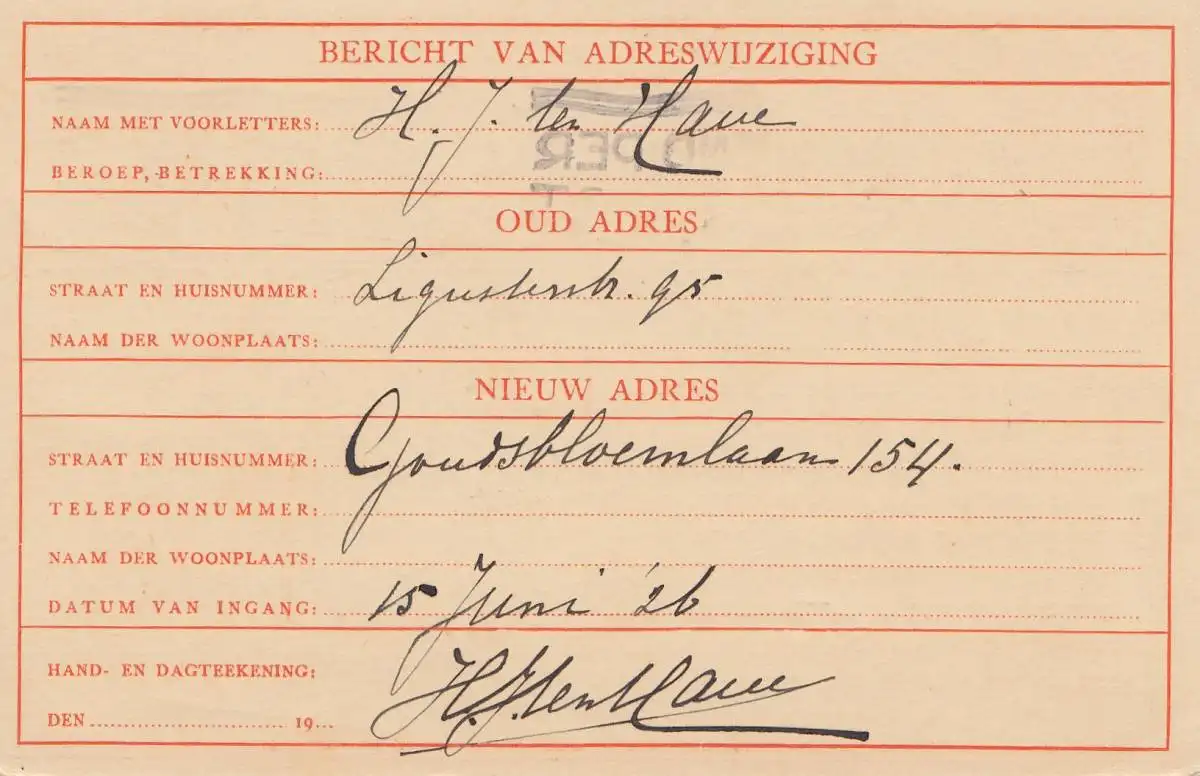 BERICHT VAN ADRESWIJZIGING
NAAM MET VOORLETTERS: H. J. ten Have
BEROEP, BETREKKING:
OUD ADRES
STRAAT EN HUISNUMMER: Ligusterstr. 95
NAAM DER WOONPLAATS:
NIEUW ADRES
STRAAT EN HUISNUMMER: Goudsbloemlaan 154.
TELEFOONNUMMER:
NAAM DER WOONPLAATS:
DATUM VAN INGANG: 15 Juni '26
HAND- EN DAGTEEKENING: H. J. ten Have
DEN 19